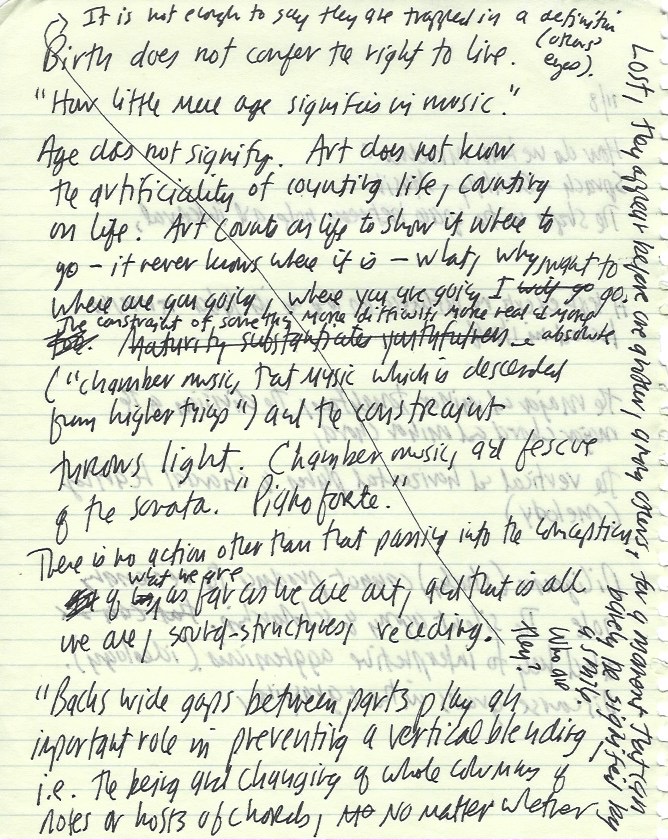 It is not enough to say they are trapped in a definition
(others'
eyes).
Birth does not confer the right to live.
"How little mere age signifies in music."
Age does not signify. Art does not know
the artificiality of counting life, counting
on life. Art counts on life to show it where to
go – it never knows where it is – what, why, might to
where are you going, where you are going I will go go.
The constraint of something more difficult, more real & more
Maturity substantiates youthfulness absolute
("chamber music, that music which is descended
from higher things") and the constraint
throws light. Chamber music, and fescue
of the sonata. "Pianoforte."
There is no action other than that passing into the conception
what we are
of as far as we are art, and that is all
we are, sound-structures, receding.
"Bachs wide gaps between parts play an
important role in preventing a vertical blending,
i.e. the being and changing of whole columns of
notes or hosts of chords, no matter whether
Lost, they appear before one another, among others, for a moment they can
barely be signified by
a smile.
Who are
they?